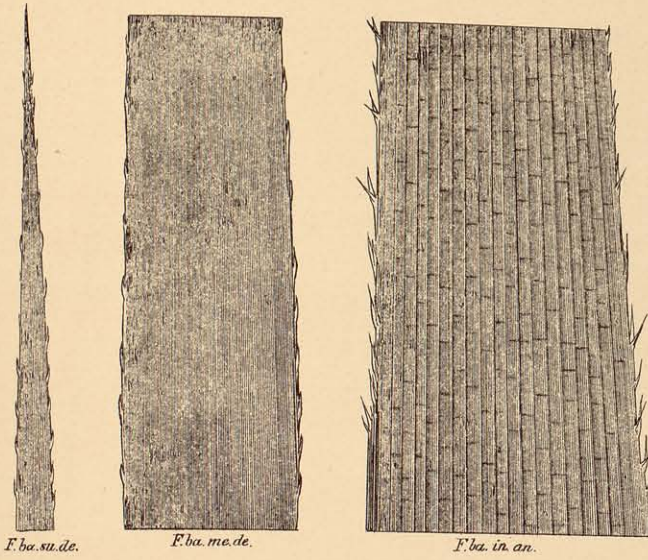 F.ba.su.de.
F.ba.me.de.
F.ba.in.an.